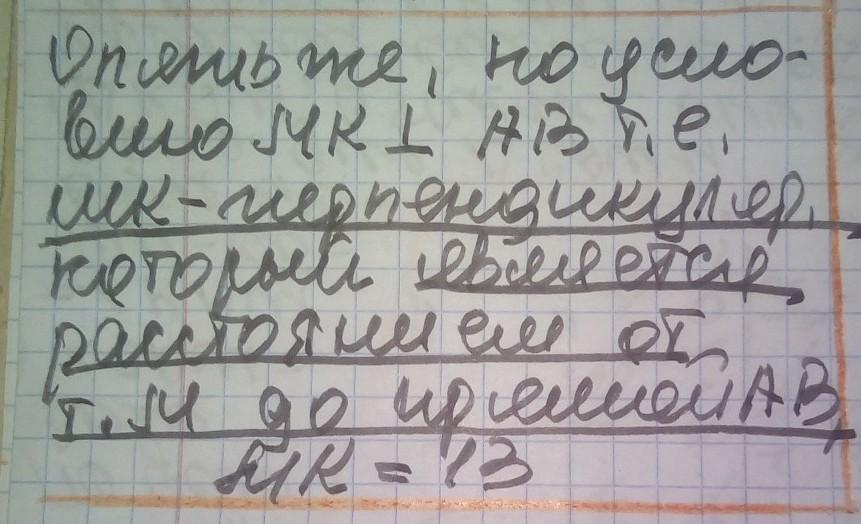 Опять же, по усло-
вию МК ⊥ АВ т.е.
МК - перпендикуляр,
который является
расстоянием от
т. М до прямой АВ,
МК = 13